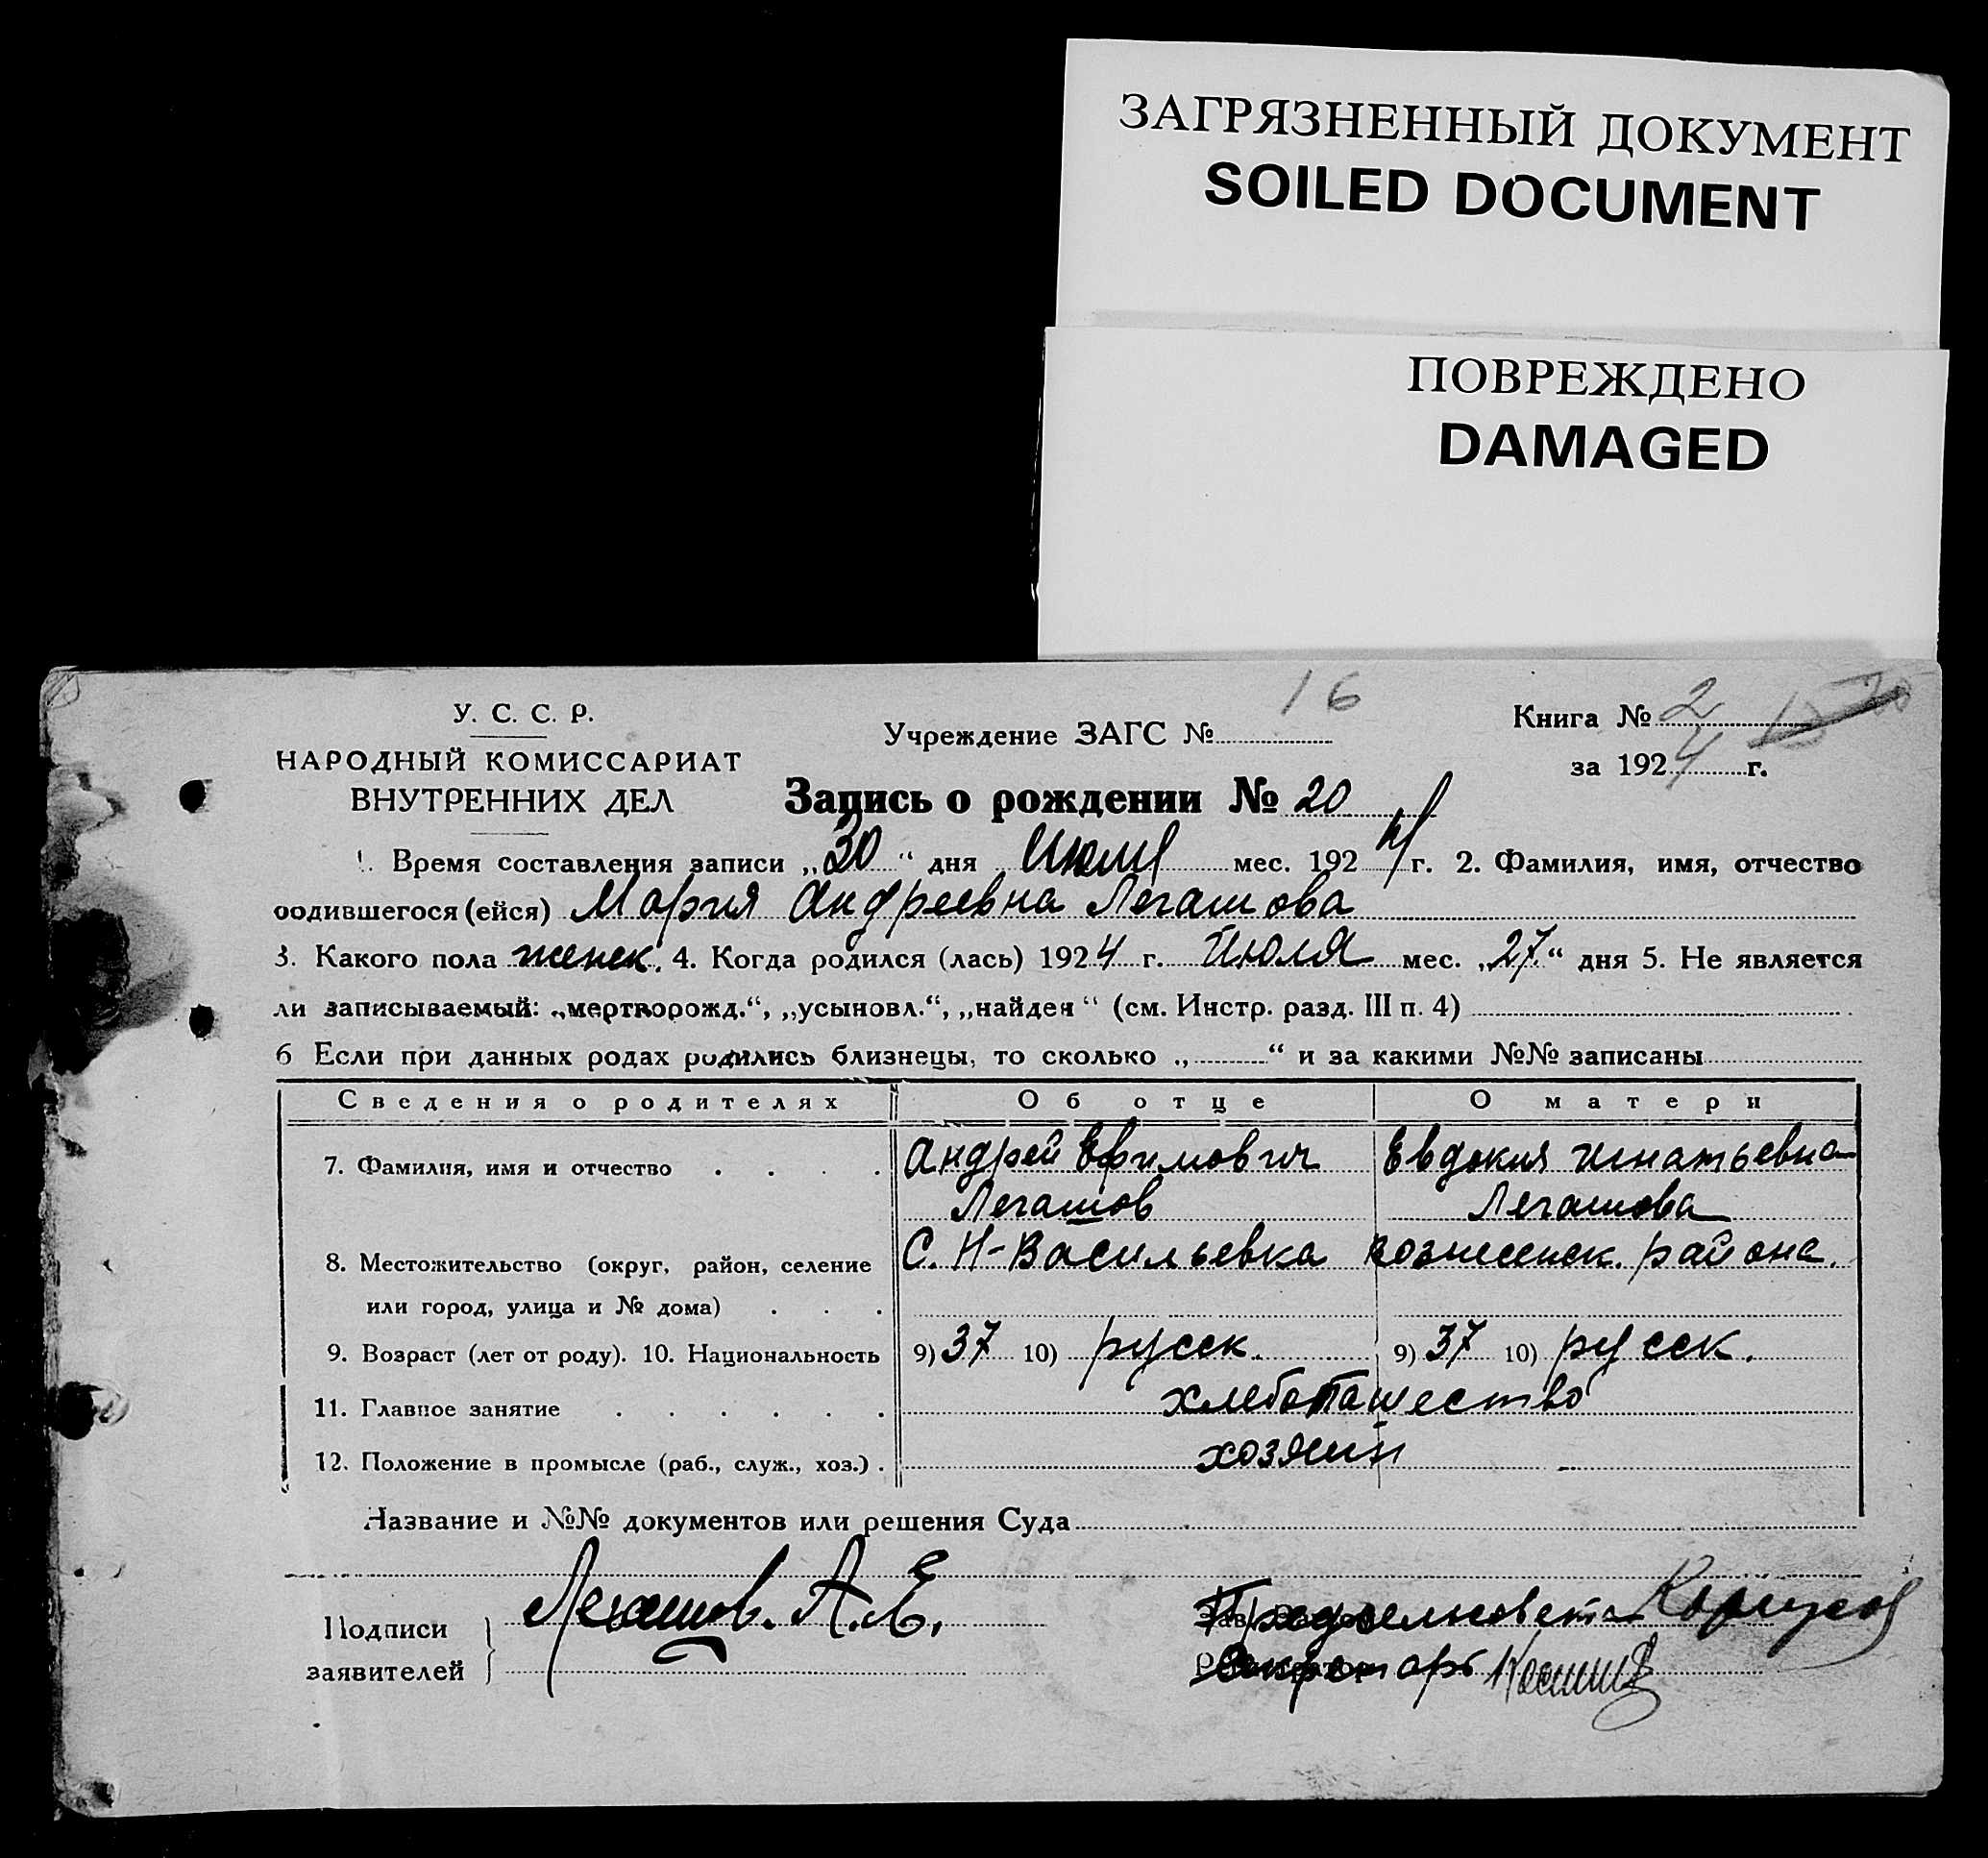 ЗАГРЯЗНЕННЫЙ ДОКУМЕНТ
SOILED DOCUMENT
ПОВРЕЖДЕНО
DAMAGED
У. С. С. Р.
НАРОДНЫЙ КОМИССАРИАТ
ВНУТРЕННИХ ДЕЛ
Учреждение ЗАГС № 16
Книга № 2
за 1924 г.
Запись о рождении № 20
1. Время составления записи „30“ дня Июля мес. 1924 г. 2. Фамилия, имя, отчество
родившегося (ейся) Мария Андреевна Легашова
3. Какого пола женск. 4. Когда родился (лась) 1924 г. Июля мес. „27“ дня 5. Не является
ли записываемый: „мертворожд.“, „усыновл.“, „найден“ (см. Инстр. разд. III п. 4)
6 Если при данных родах родились близнецы, то сколько „ “ и за какими №№ записаны
Сведения о родителях Об отце О матери
7. Фамилия, имя и отчество Андрей Ефимович Евдокия Игнатьевна
Легашов Легашова
8. Местожительство (округ, район, селение С. Н-Васильевка Вознесенск. района.
или город, улица и № дома)
9. Возраст (лет от роду). 10. Национальность 9) 37 10) русск. 9) 37 10) русск.
11. Главное занятие хлебопашество
12. Положение в промысле (раб., служ., хоз.) хозяин
Название и №№ документов или решения Суда
Подписи
заявителей
Легашов. А. Е.
Предсельсовета
Секретарь